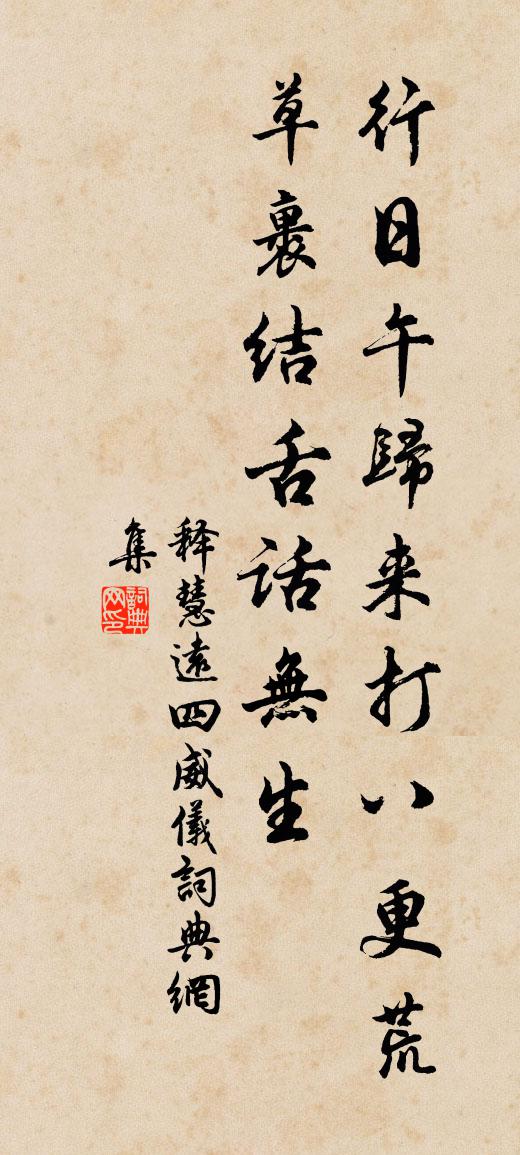 行日午歸来打八更荒
草裹结舌话無生
释慧遠四威儀詞典網
集
詞典
网印